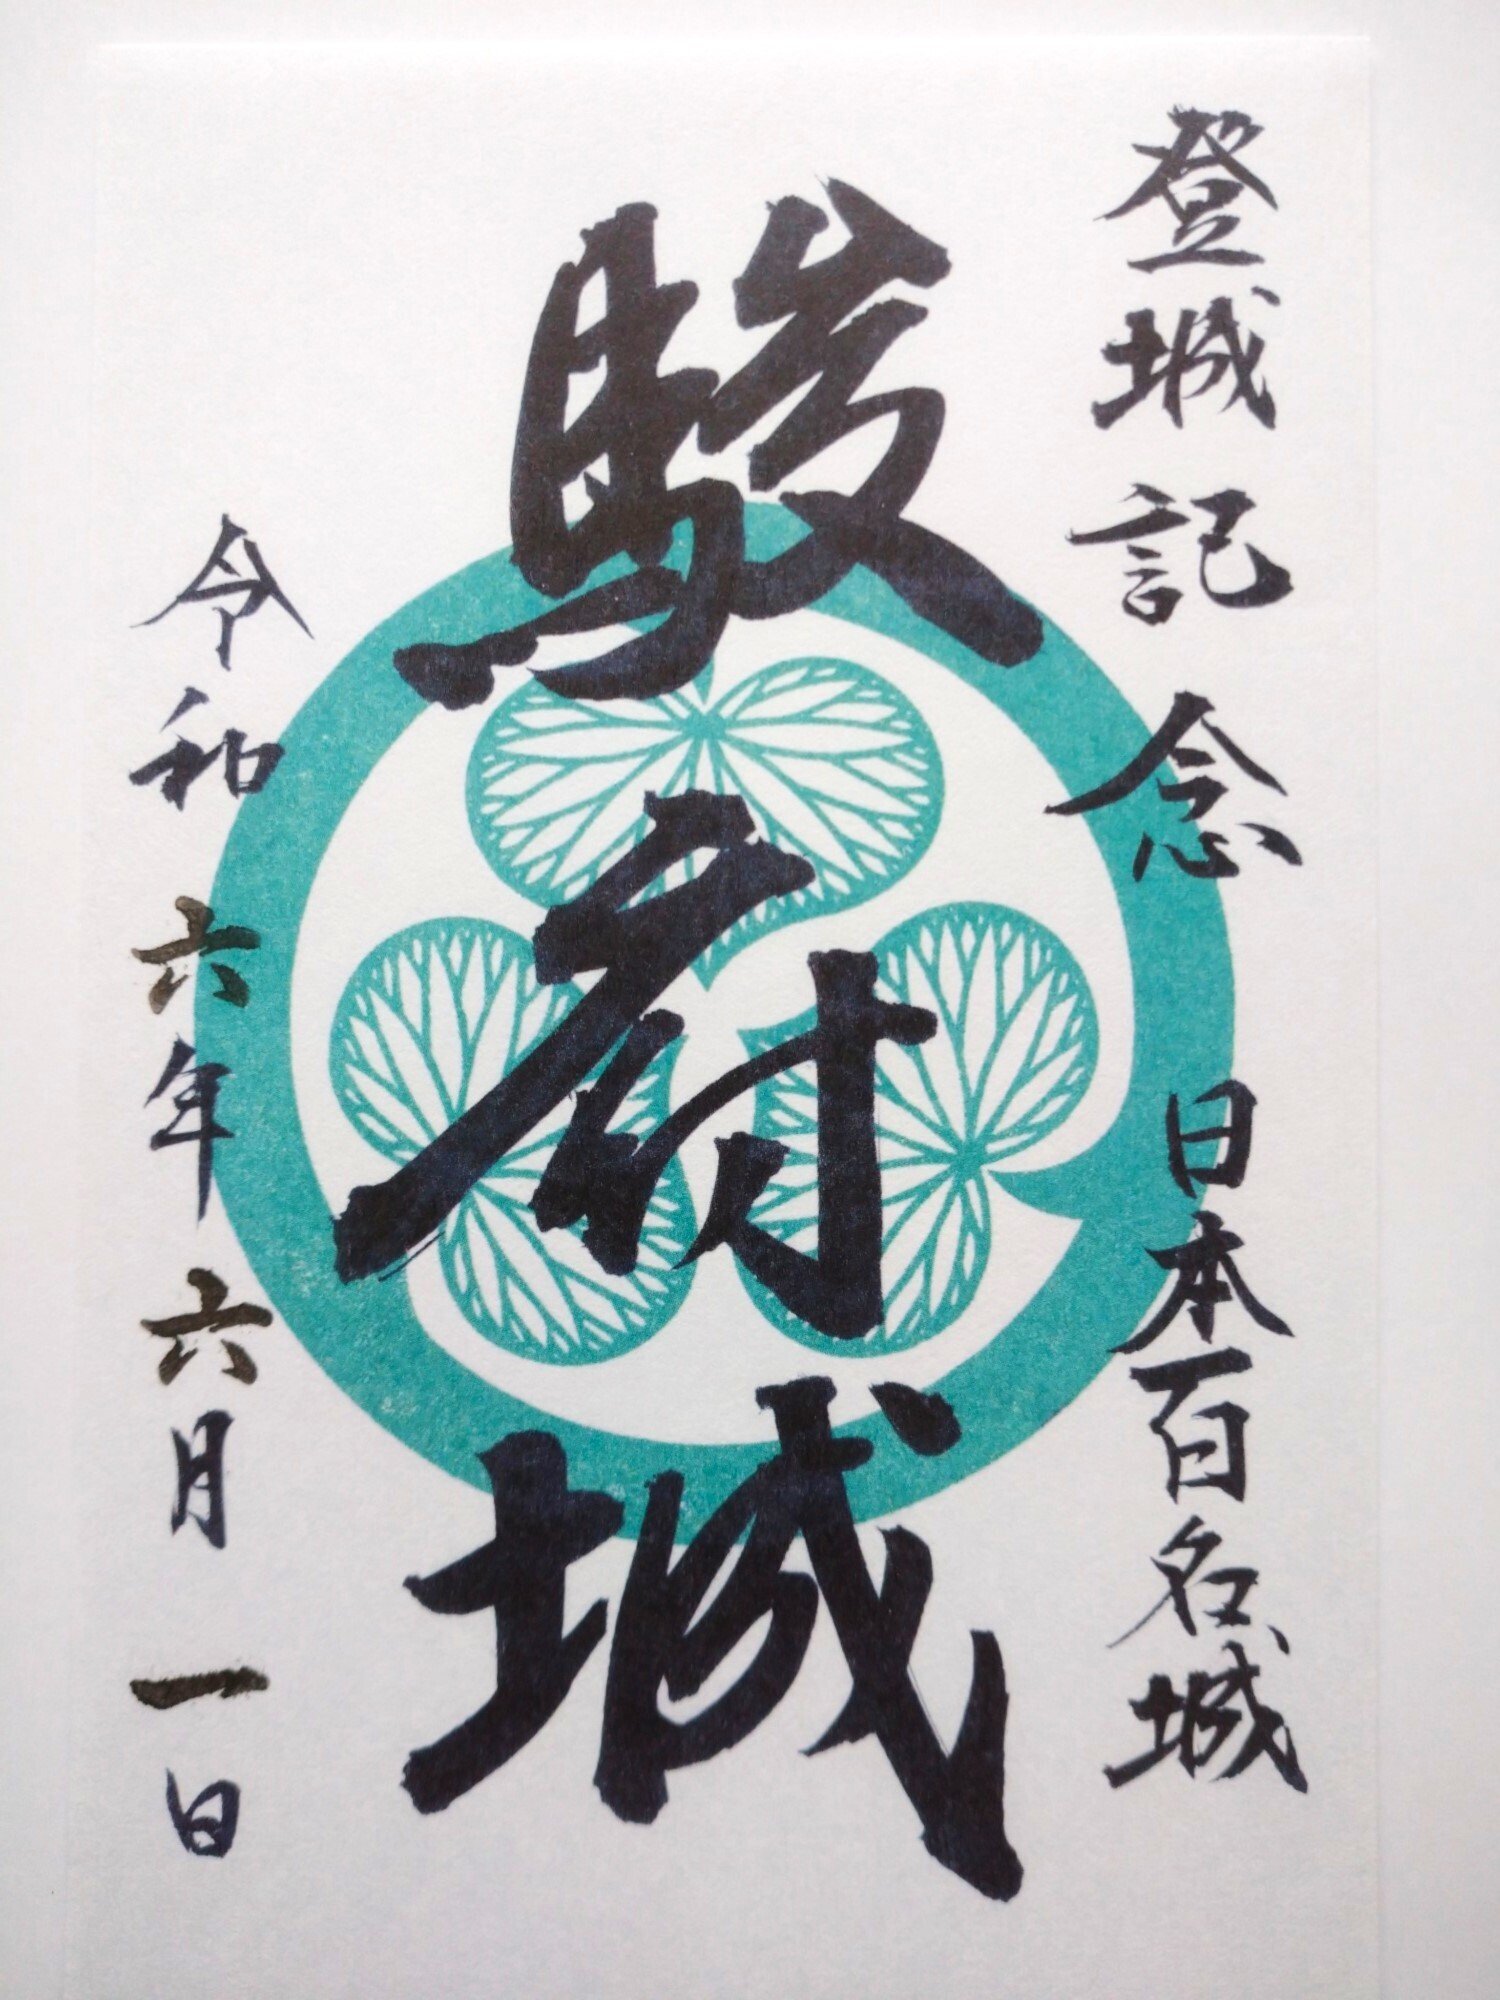 登城記念 日本百名城
駿府城
令和六年六月一日